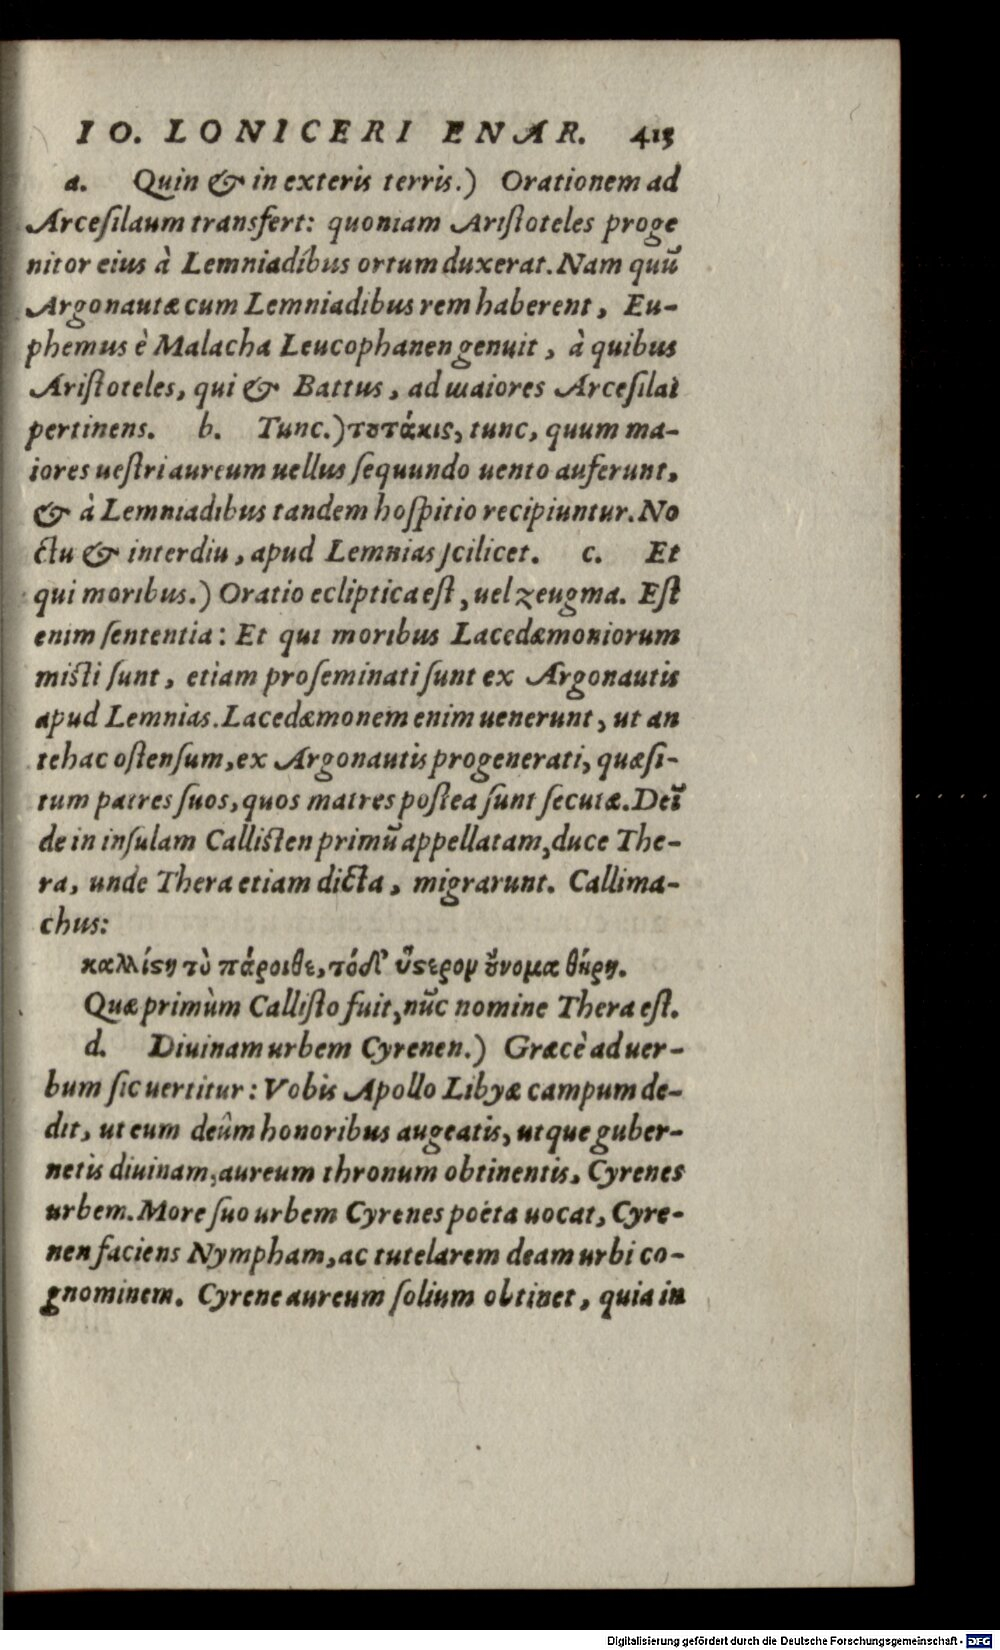 IO. LONICERI ENAR. 413
a. Quin & in exteris terris.) Orationem ad
Arcesilaum transfert: quoniam Aristoteles proge
nitor eius à Lemniadibus ortum duxerat. Nam quũ
Argonautæ cum Lemniadibus rem haberent, Eu-
phemus è Malacha Leucophanen genuit, à quibus
Aristoteles, qui & Battus, ad maiores Arcesilai
pertinens. b. Tunc.) τουτάκις, tunc, quum ma-
iores uestri aureum uellus sequundo uento auferunt,
& à Lemniadibus tandem hospitio recipiuntur. No
ctu & interdiu, apud Lemnias scilicet. c. Et
qui moribus.) Oratio ecliptica est, uel zeugma. Est
enim sententia: Et qui moribus Lacedæmoniorum
misti sunt, etiam proseminati sunt ex Argonautis
apud Lemnias. Lacedæmonem enim uenerunt, ut an
tehac ostensum, ex Argonautis progenerati, quæsi-
tum patres suos, quos matres postea sunt secutæ. Deĩ
de in insulam Callisten primũ appellatam, duce The-
ra, unde Thera etiam dicta, migrarunt. Callima-
chus:
καλλίστη τὸ πάροιθε, τόδ' ὕστερον οὔνομα θήρη.
Quæ primùm Callisto fuit, nũc nomine Thera est.
d. Diuinam urbem Cyrenen.) Græcè ad uer-
bum sic uertitur: Vobis Apollo Libyæ campum de-
dit, ut eum deûm honoribus augeatis, utque guber-
netis diuinam, aureum thronum obtinentis, Cyrenes
urbem. More suo urbem Cyrenes poëta uocat, Cyre-
nen faciens Nympham, ac tutelarem deam urbi co-
gnominem. Cyrene aureum solium obtinet, quia in
Digitalisierung gefördert durch die Deutsche Forschungsgemeinschaft - DFG